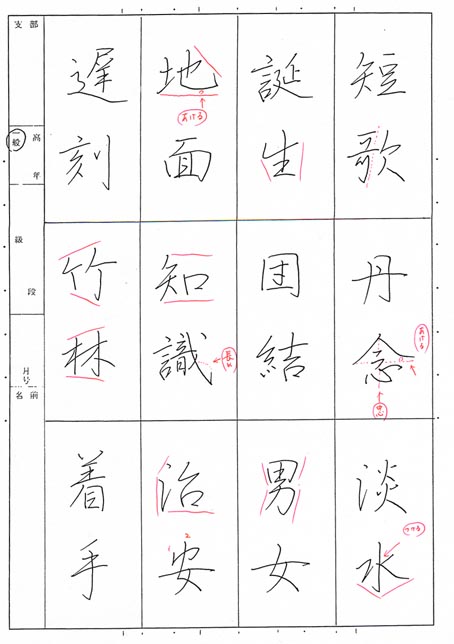 短歌
誕生
地面
遅刻
丹念
団結
知識
竹林
淡水
男女
治安
着手
あける
あける
長め
つける
1
2
支部
高年
一般
級
段
月号
名前